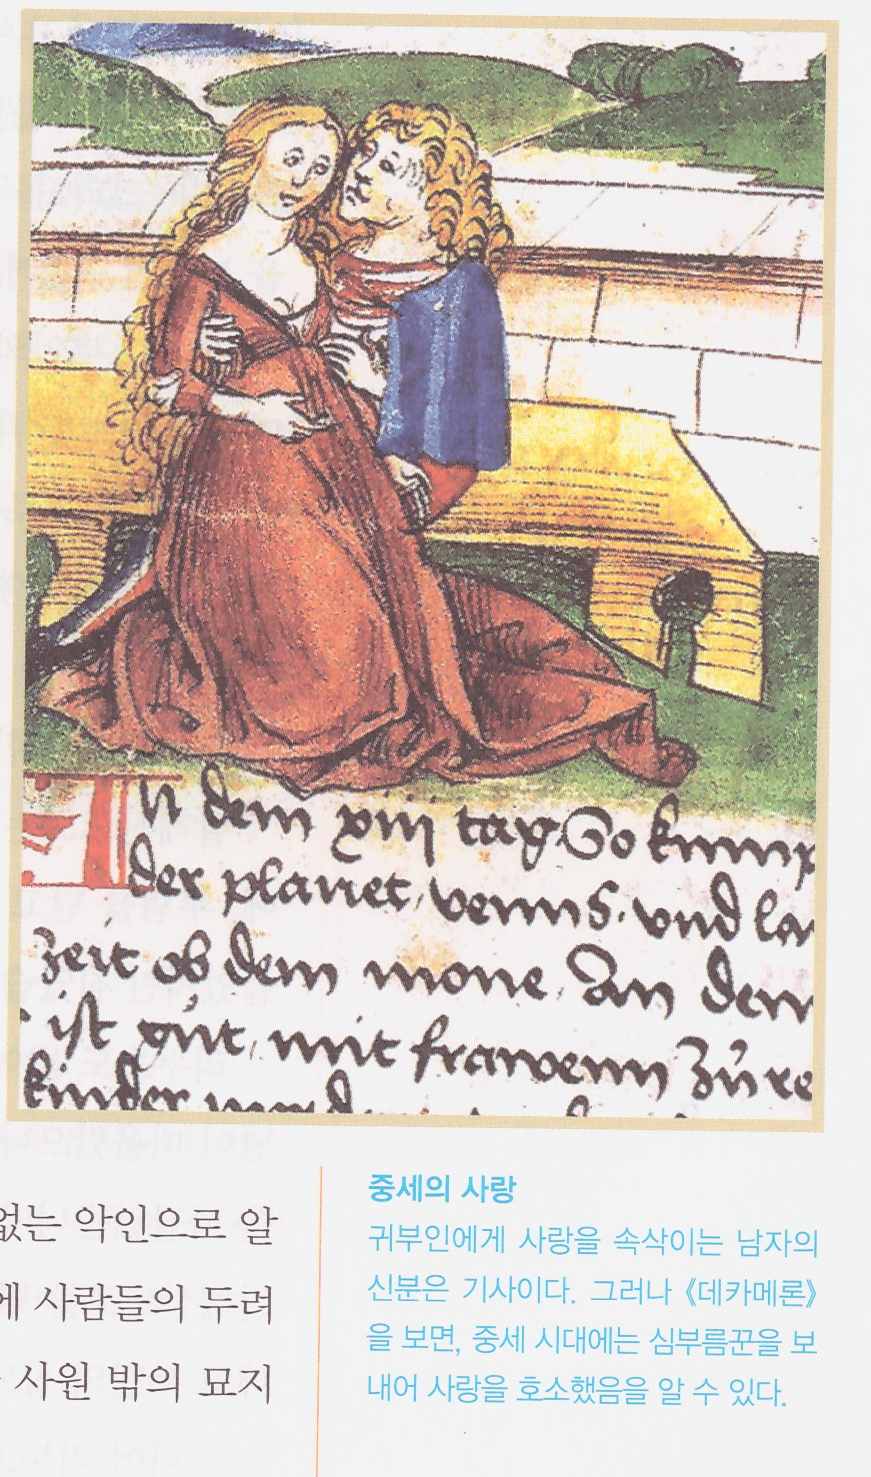 In dem xiij tag So kump
der planet, venus. vnd la
zeit ob dem mone, An dem
ist gůt, mit frawenn Zů re
kinder
없는 악인으로 알
에 사람들의 두려
사원 밖의 묘지
중세의 사랑
귀부인에게 사랑을 속삭이는 남자의
신분은 기사이다. 그러나 《데카메론》
을 보면, 중세 시대에는 심부름꾼을 보
내어 사랑을 호소했음을 알 수 있다.